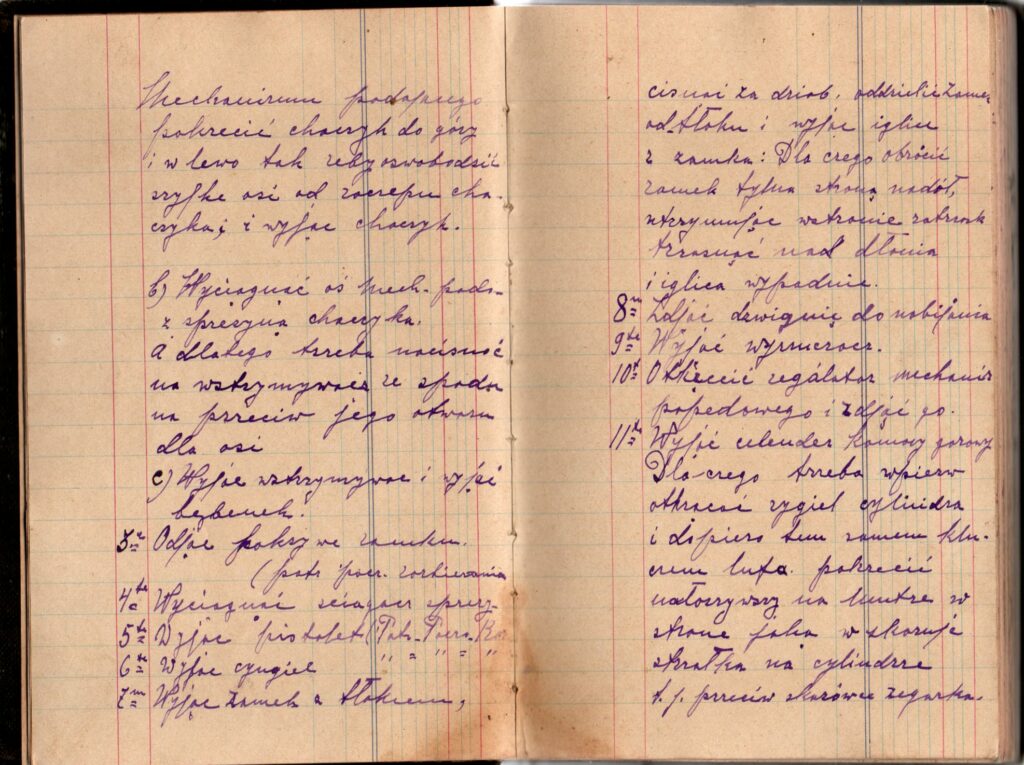 Mechanizmu podającego
pokręcić chaczyk do góry
i w lewo tak żeby oswobodzić
szyjkę osi od zaczepu cha-
czyka, i wyjąc chaczyk.
b) Wyciągnąć oś mech. poda-
z sprężyną chaczyka.
A dlatego trzeba nacisnąć
na wstrzymywacz ze spodu
na przeciw jego otworu
dla osi
c) Wyjąc wstrzymywac i wyjąć
bębenek.
3 Odjąc pokrywe zamku.
(patr pocz. rozbierania
4te Wyciągnąć ściągacz spręż-
5te Wyjąc pistolet (Patr. Pocz. Roz
6te Wyjąc cyngiel " " = "
7m Wyjąc zamek z tłokiem,
cisnąć za dziób, oddzielić zamek
od tłoku i wyjąc iglicę
z zamka: Dla czego obrócić
zamek tylną stroną nadół,
utrzymując wstronie zatrzask
trzasnąć nad dłonią
i iglica wypadnie.
8m Zdjąć dzwignię do nabijania
9te Wyjąć wyrzucacz.
10te Otkręcić regálator mechaniz
popedowego i zdjąć go.
11te Wyjąć celender komory gazowy
Dla czego trzeba wpierw
otkręcić rygiel cylindra
i dopiero tem samem klu-
czem lufa pokręcić
nałożywszy na mutrę w
stronę jaka wskazuje
strzałka na cylindrze
t. j. przeciw skazówce zegarka.